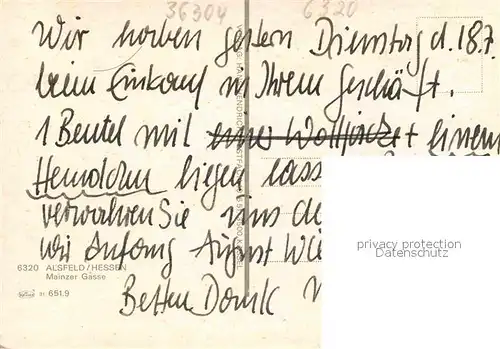 36304 6320
Wir haben gestern Dienstag d. 18.7.
beim Einkauf in Ihrem Geschäft.
1 Beutel mit einer Wolljacke + einem
Hemdchen liegen lass
verwahren Sie uns de
wir Anfang August
Besten Dank
6320 ALSFELD/HESSEN
Mainzer Gasse
31 651.9
privacy protection
Datenschutz